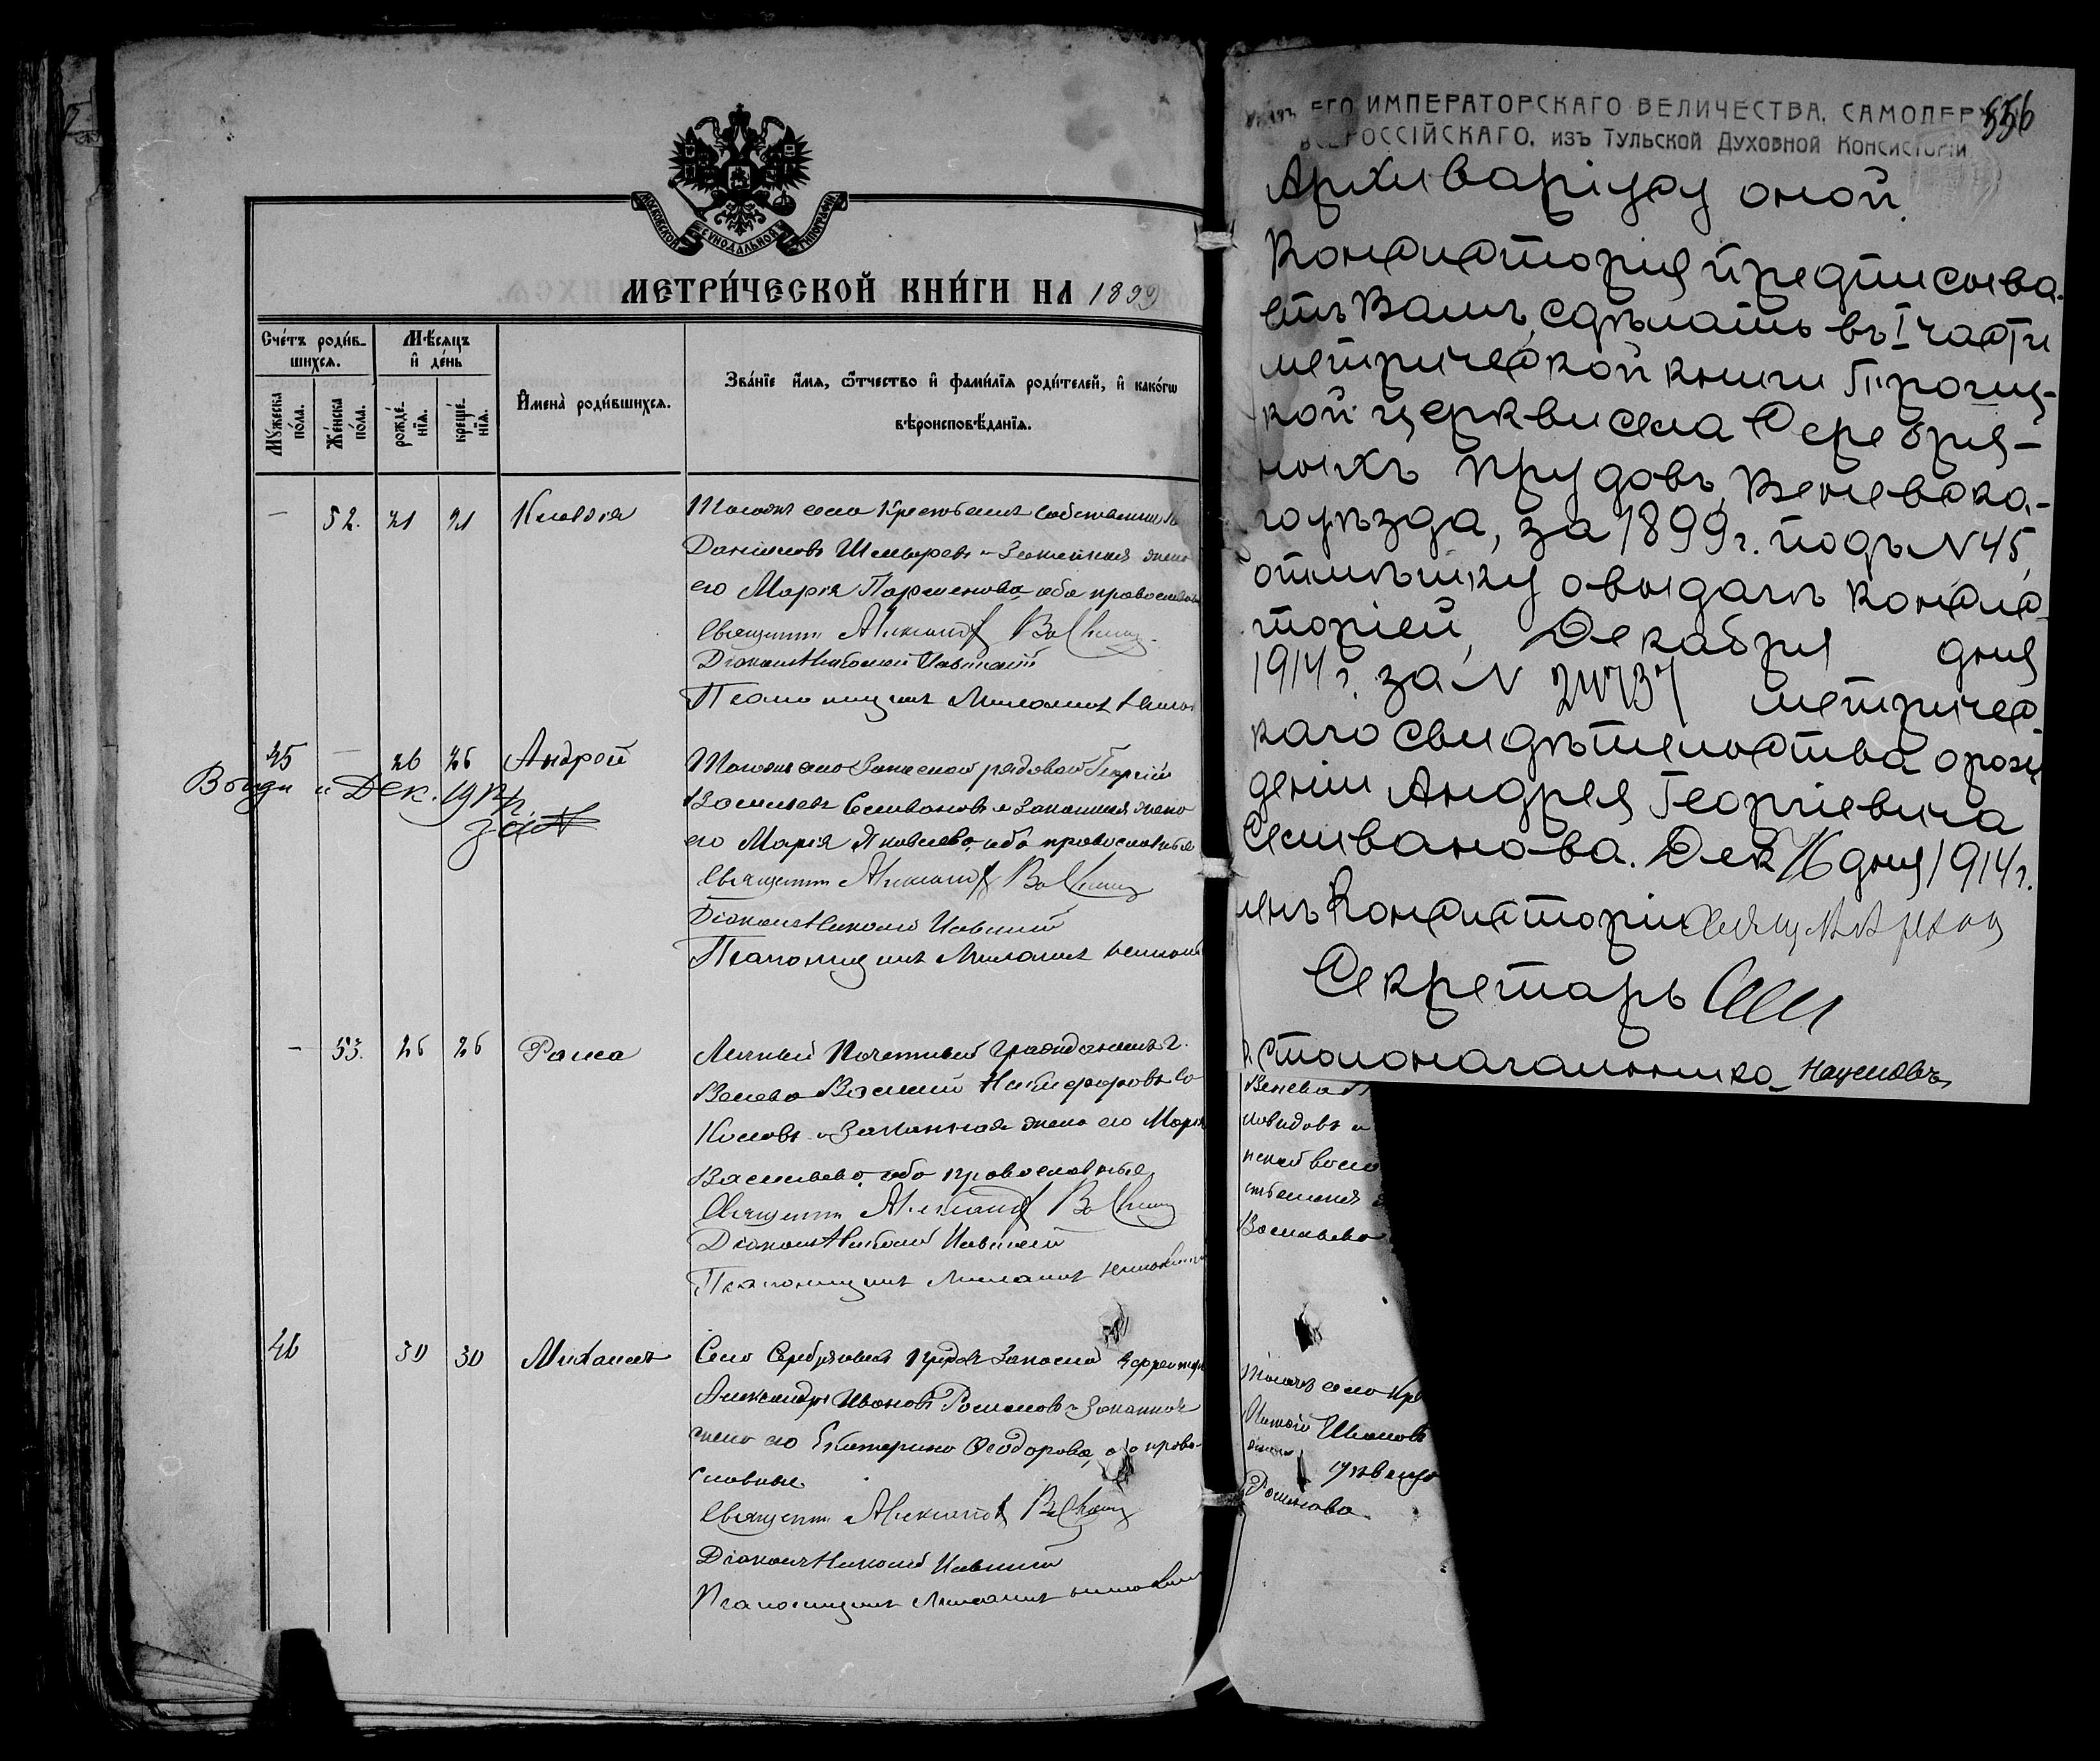 МОСКОВСКОЙ СѴНОДАЛЬНОЙ ТИПОГРАФІИ
МЕТРИ́ЧЕСКОЙ КНИ́ГИ НА 1899
Сче́тъ роди́в-
шихся.
Мѣ́сяцъ
и҆ де́нь
Мꙋ́жеска
по́ла.
Же́нска
по́ла.
рожде́-
нїя.
креще́-
нїя.
И҆мена̀ роди́вшихся.
Зва́нїе и҆́мя, ѻ҆́тчество и҆ фами́лїя роди́телей, и҆ како́гѡ
вѣроисповѣ́данїя.
— 52. 21 21 Клавдія
Тогоже села Крестьянинъ собственникъ
Даніиловъ и законная жена
его Марія Парменова, оба православные
Священникъ Александръ
Діаконъ Николай
Псаломщикъ
45 — 26 26 Андрей
Тогоже села Запасной рядовой Георгій
Васильевъ Селивановъ и законная жена
его Марія Яковлева, оба православные
Выдан Дек. 1914 г.
за №
Священникъ Александръ
Діаконъ Николай
Псаломщикъ
— 53. 26 26 Раиса
Личный Почетный Гражданинъ г.
Венева Василій Никифоровъ Со
коловъ и законная жена его Марія
Васильева, оба православные
Священникъ Александръ
Діаконъ Николай
Псаломщикъ
46 30 30 Михаилъ
Села Серебряныхъ Прудъ Запасной Ефрейторъ
Александръ Ивановъ и законная
жена его Екатерина Ѳеодорова, оба право-
славные
Священникъ Александръ
Діаконъ Николай
Псаломщикъ
556
Указъ ЕГО ИМПЕРАТОРСКАГО ВЕЛИЧЕСТВА, САМОДЕРЖЦА
ВСЕРОССІЙСКАГО, изъ Тульской Духовной Консисторіи
Архиваріусу оной.
Консисторія предписыва-
етъ Вамъ сдѣлать въ I части
метрической книги Троиц-
кой церкви села Серебря-
ныхъ прудовъ, Веневска-
го уѣзда, за 1899 г. подъ N 45,
отмѣтку о выдачѣ Консис
торіей, Декабря дня
1914 г. за N 24737 метричес
каго свидѣтельства о рож
деніи Андрея Георгіевича
Селиванова. Дек 16 дня 1914 г.
Членъ Консисторіи
Секретарь
Столоначальника Наумовъ
Венева
Васильева
Тогоже села Кре
Ивановъ